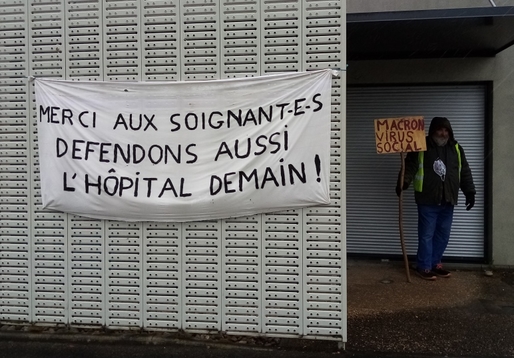 MERCI AUX SOIGNANT-E-S
DEFENDONS AUSSI
L'HÔPITAL DEMAIN !
MACRON
VIRUS
SOCIAL